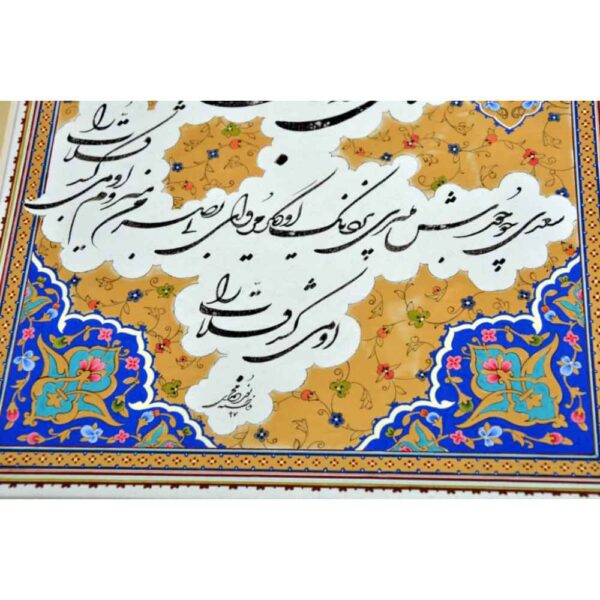 سعدی چو جورش میبری نزدیک او دیگر مرو ای بی بصر من میروم او میکشد قلاب را
او میکشد قلاب را
۹۷